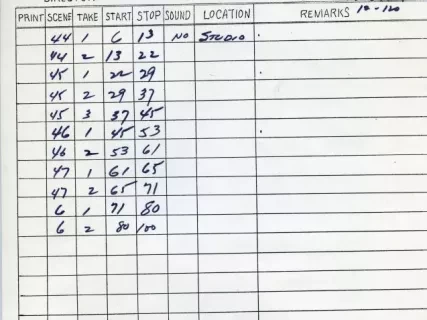 PRINT SCENE TAKE START STOP SOUND LOCATION REMARKS
44 1 6 13 NO STUDIO
44 2 13 22
45 1 22 29
45 2 29 37
45 3 37 45
46 1 45 53
46 2 53 61
47 1 61 65
47 2 65 71
6 1 71 80
6 2 80 100